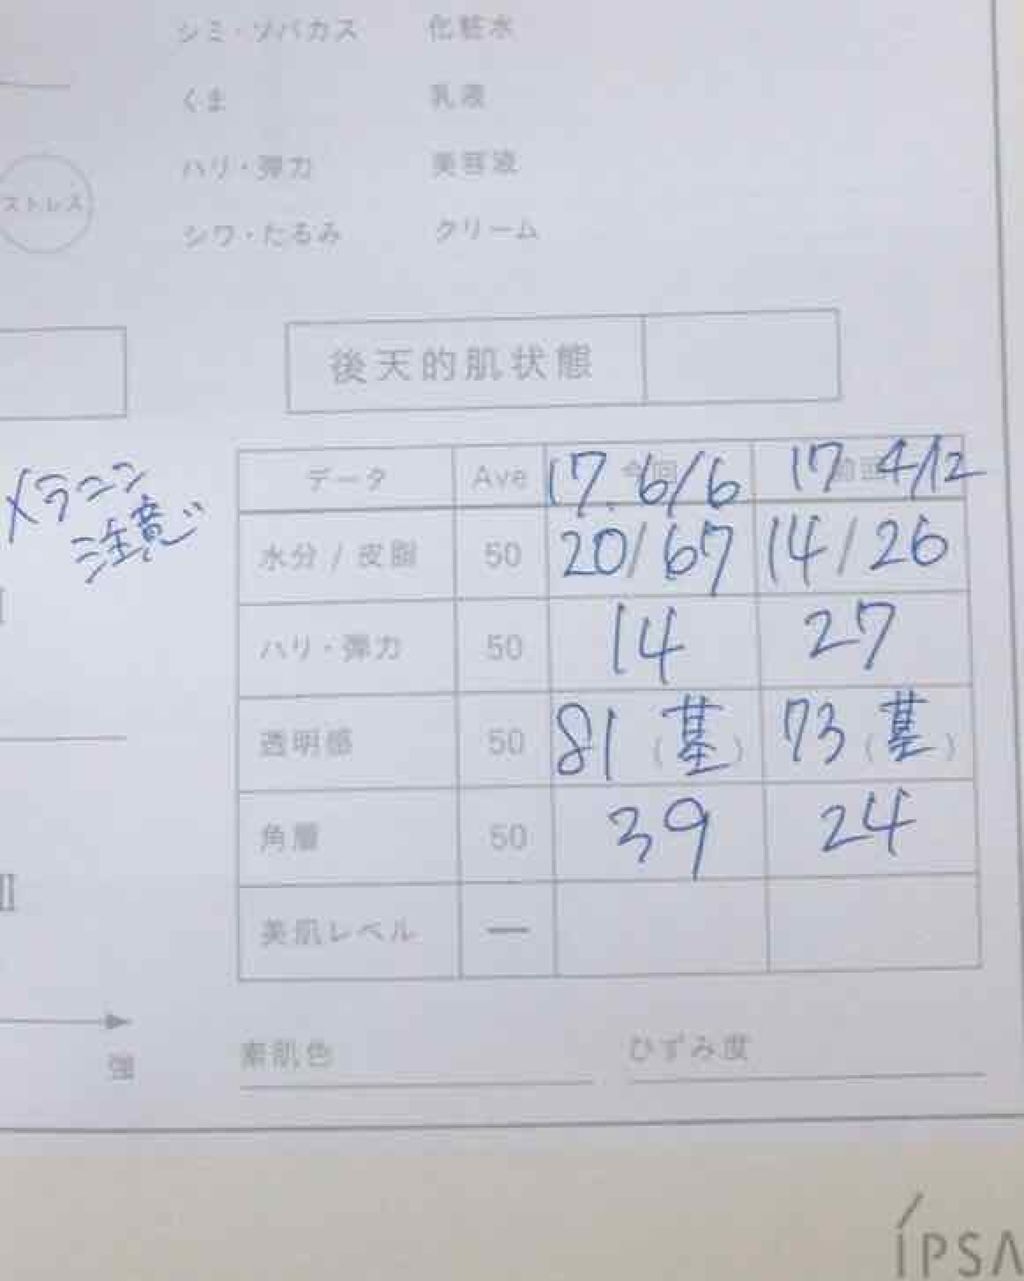 シミ・ソバカス 化粧水
くま 乳液
ハリ・弾力 美容液
ストレス
シワ・たるみ クリーム
後天的肌状態
メラニン
注意
データ Ave 今回 17. 6/6 前回 17 4/12
水分 / 皮脂 50 20/67 14/26
ハリ・弾力 50 14 27
透明感 50 81 (基) 73 (基)
角層 50 39 24
美肌レベル —
II
強
素肌色 ひずみ度
IPSA